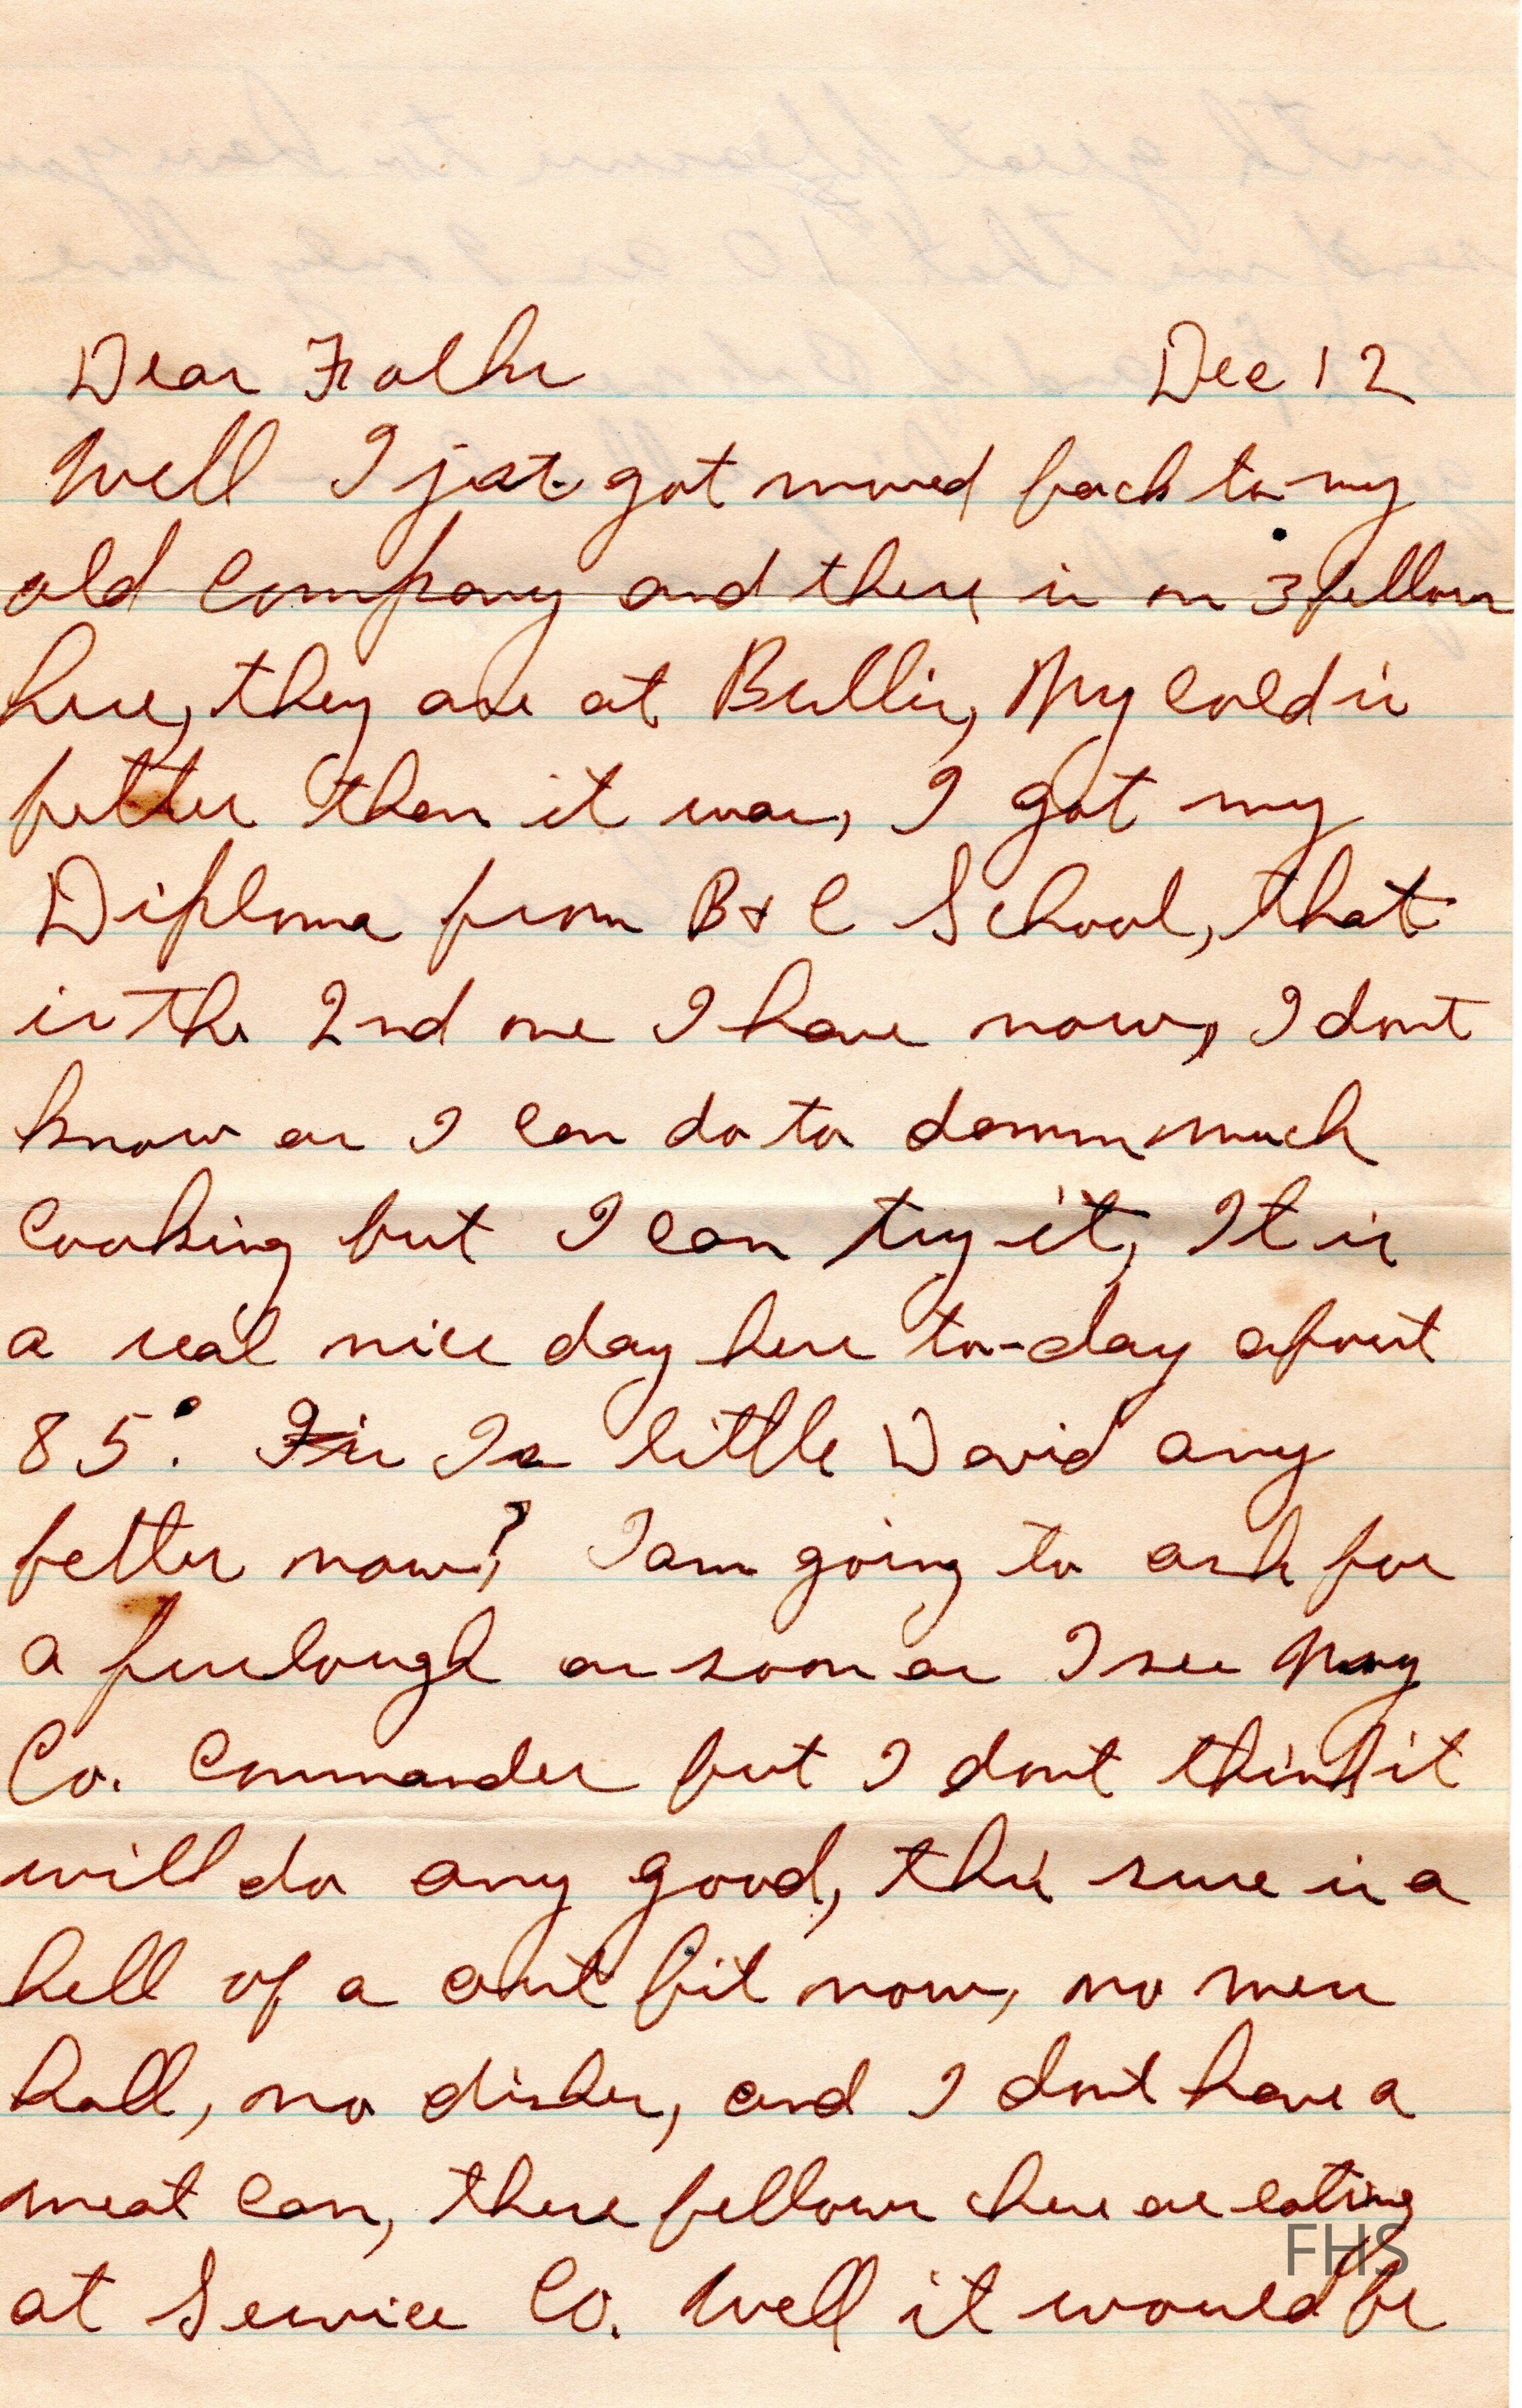 Dear Folks Dec 12
Well I just got moved back to my
old Company and there is on 3 fellows
here, they are at Bullis, My cold is
better then it was, I got my
Diploma from B & C School, that
is the 2nd one I have now, I dont
know as I can do to damm much
Cooking but I can try it, It is
a real nice day here to-day about
85°. Is little David any
better now? I am going to ask for
a furlough as soon as I see My
Co. Commander but I dont think it
will do any good, this sure is a
hell of a out fit now, no mess
hall, no dishes, and I dont have a
meat can, these fellows here are eating
at Service Co. Well it would be
FHS